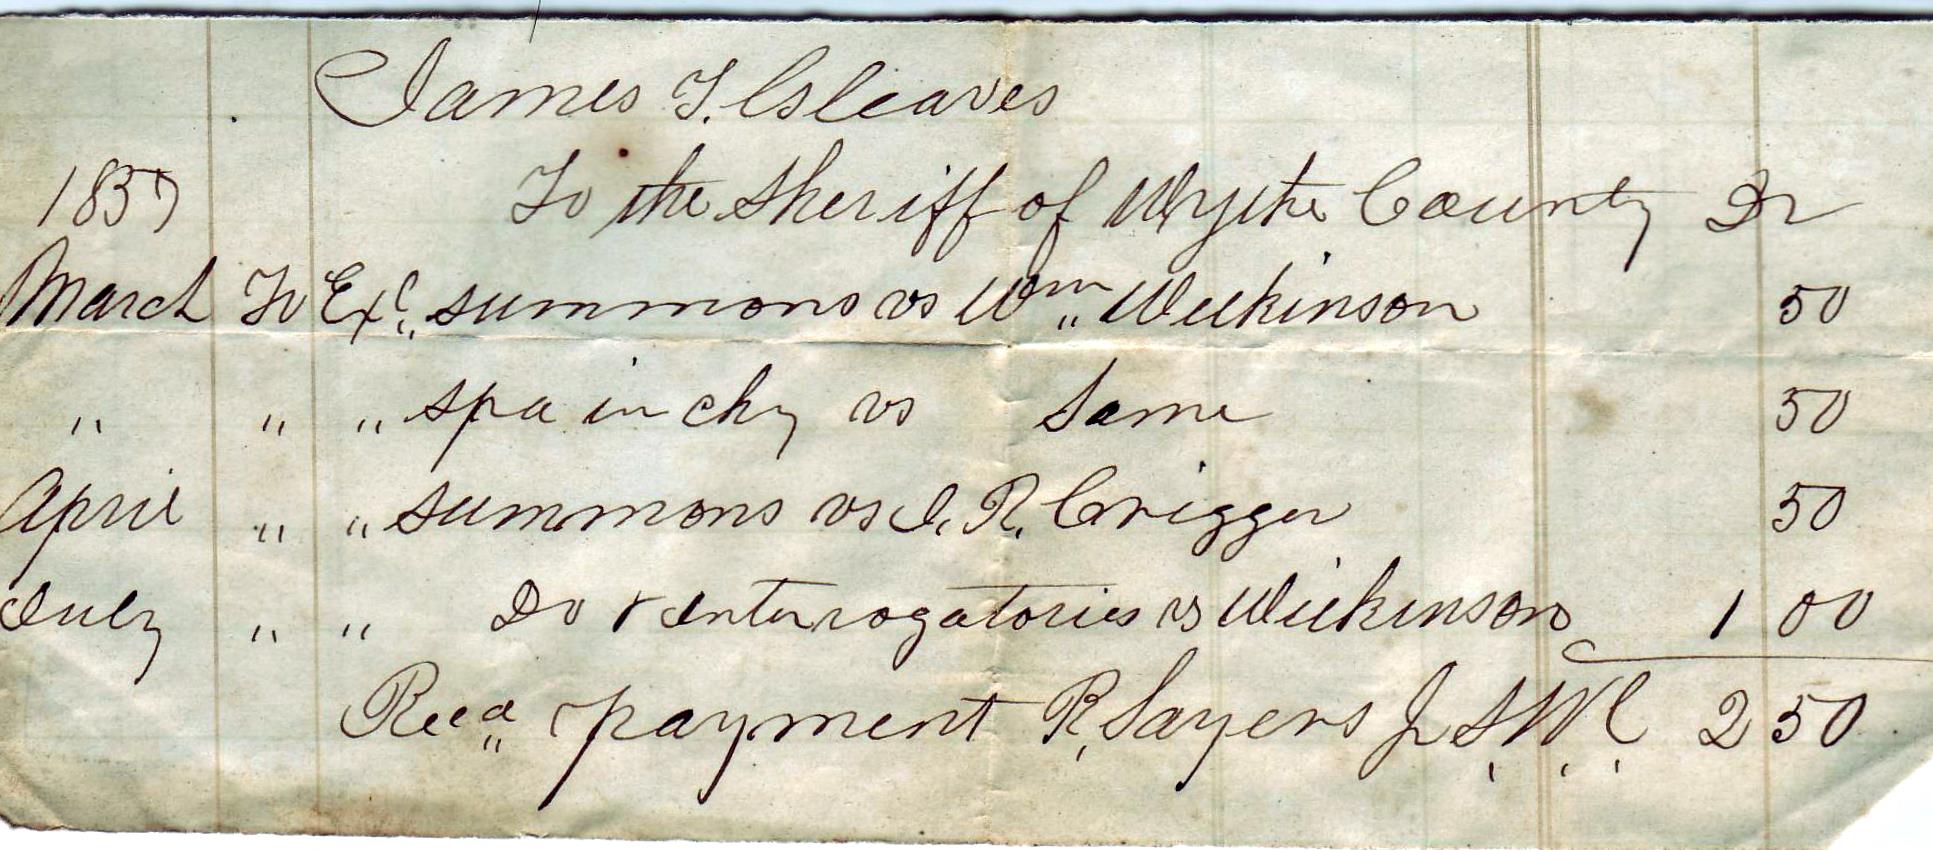 James T. Gleaves
1857 To the Sheriff of Wythe County Dr
March To Exc. summons vs Wm Wilkinson 50
" " " spa in chy vs Same 50
April " " summons vs J. R. Crigger 50
July " " Do & Interrogatories vs Wilkinson 1 00
Recd payment R. Sayers J S. W. C. 2 50